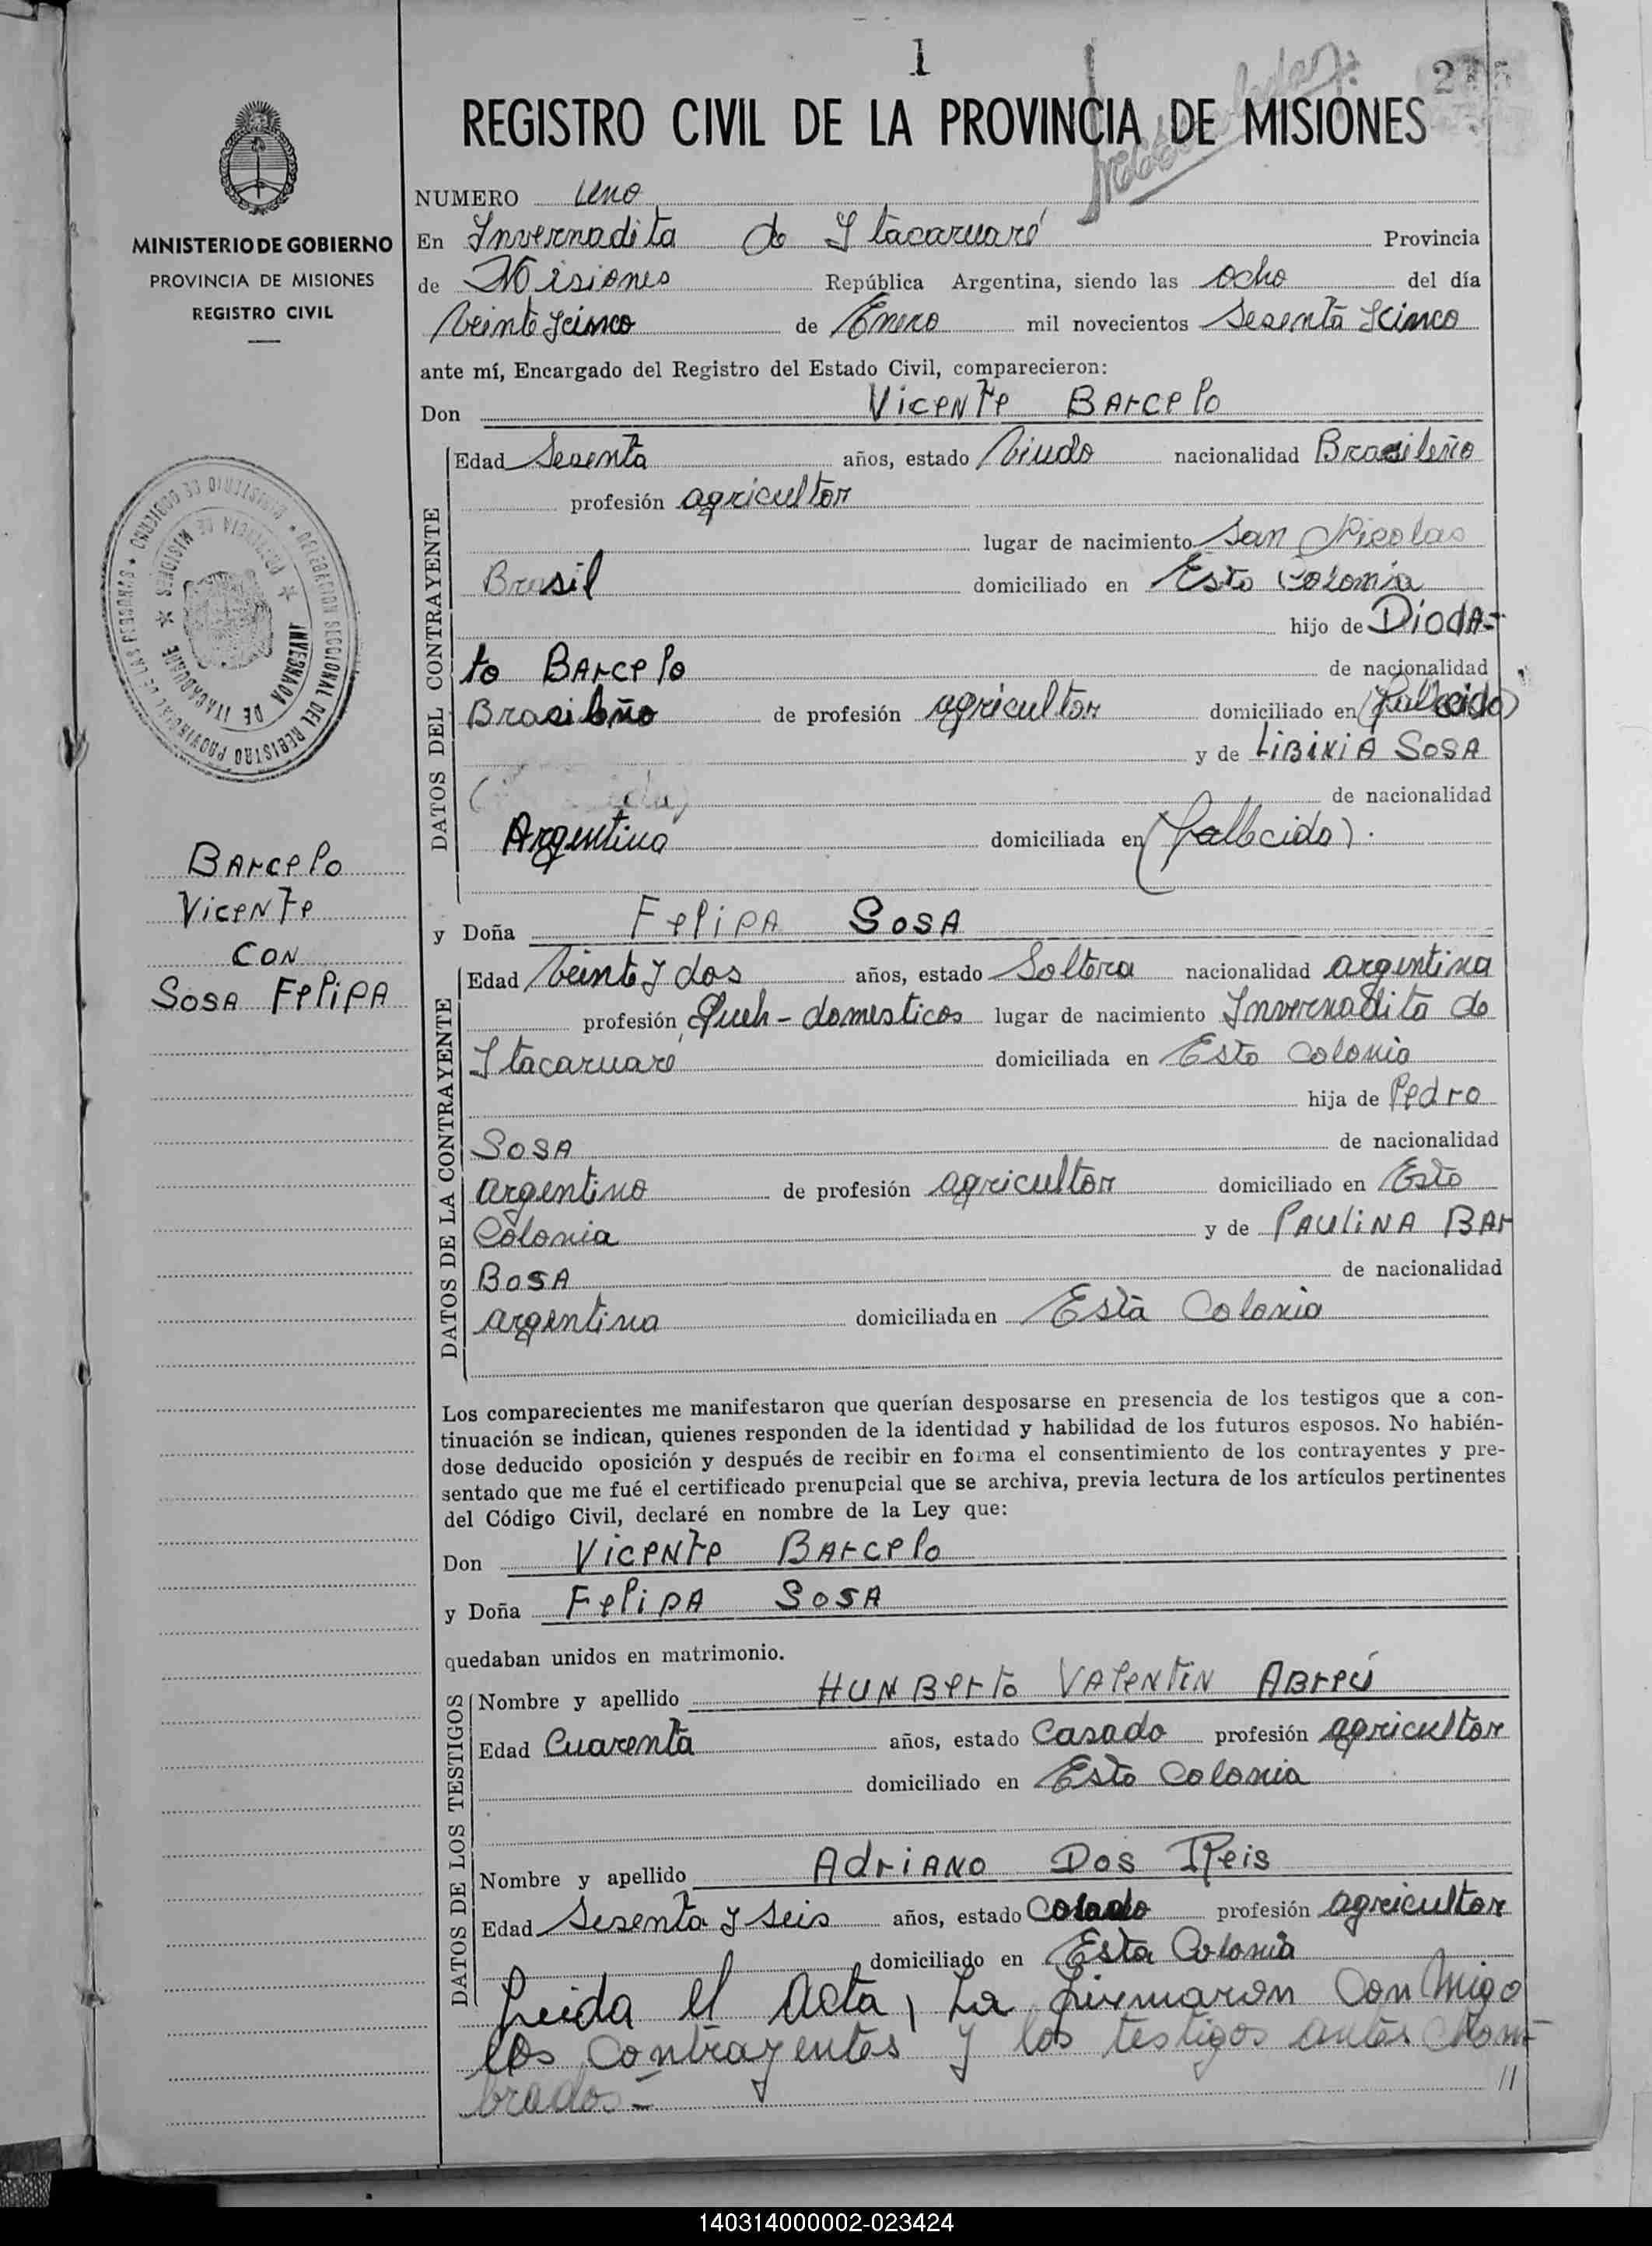 1
REGISTRO CIVIL DE LA PROVINCIA DE MISIONES
MINISTERIO DE GOBIERNO
PROVINCIA DE MISIONES
REGISTRO CIVIL
NUMERO Uno
En Invernadita de Itacaruaré Provincia
de Misiones República Argentina, siendo las ocho del día
Veinte y cinco de Enero mil novecientos Sesenta y cinco
ante mí, Encargado del Registro del Estado Civil, comparecieron:
Don Vicente Barcelo
DATOS DEL CONTRAYENTE
Edad Sesenta años, estado Viudo nacionalidad Brasileño
profesión agricultor
lugar de nacimiento San Nicolas
Brasil domiciliado en Esta Colonia
hijo de Dioda-
to Barcelo de nacionalidad
Brasileño de profesión agricultor domiciliado en (fallecido)
y de LIBINIA SOSA
de nacionalidad
Argentina domiciliada en (fallecida).
BARCELO
VICENTE
CON
SOSA FELIPA
y Doña Felipa Sosa
DATOS DE LA CONTRAYENTE
Edad Veinte y dos años, estado Soltera nacionalidad argentina
profesión Queh-domesticos lugar de nacimiento Invernadita de
Itacaruaré domiciliada en Esta Colonia
hija de Pedro
SOSA de nacionalidad
argentino de profesión agricultor domiciliado en Esta
Colonia y de PAULINA BAR
BOSA de nacionalidad
argentina domiciliada en Esta Colonia
Los comparecientes me manifestaron que querían desposarse en presencia de los testigos que a con-
tinuación se indican, quienes responden de la identidad y habilidad de los futuros esposos. No habién-
dose deducido oposición y después de recibir en forma el consentimiento de los contrayentes y pre-
sentado que me fué el certificado prenupcial que se archiva, previa lectura de los artículos pertinentes
del Código Civil, declaré en nombre de la Ley que:
Don Vicente Barcelo
y Doña Felipa Sosa
quedaban unidos en matrimonio.
DATOS DE LOS TESTIGOS
Nombre y apellido HUNBERTO VALENTIN ABREU
Edad Cuarenta años, estado Casado profesión agricultor
domiciliado en Esta Colonia
Nombre y apellido Adriano Dos Reis
Edad Sesenta y seis años, estado Casado profesión agricultor
domiciliado en Esta Colonia
Leida el Acta, La firmaron Con Migo
los Contrayentes y los testigos antes Nom-
brados.- //
140314000002-023424